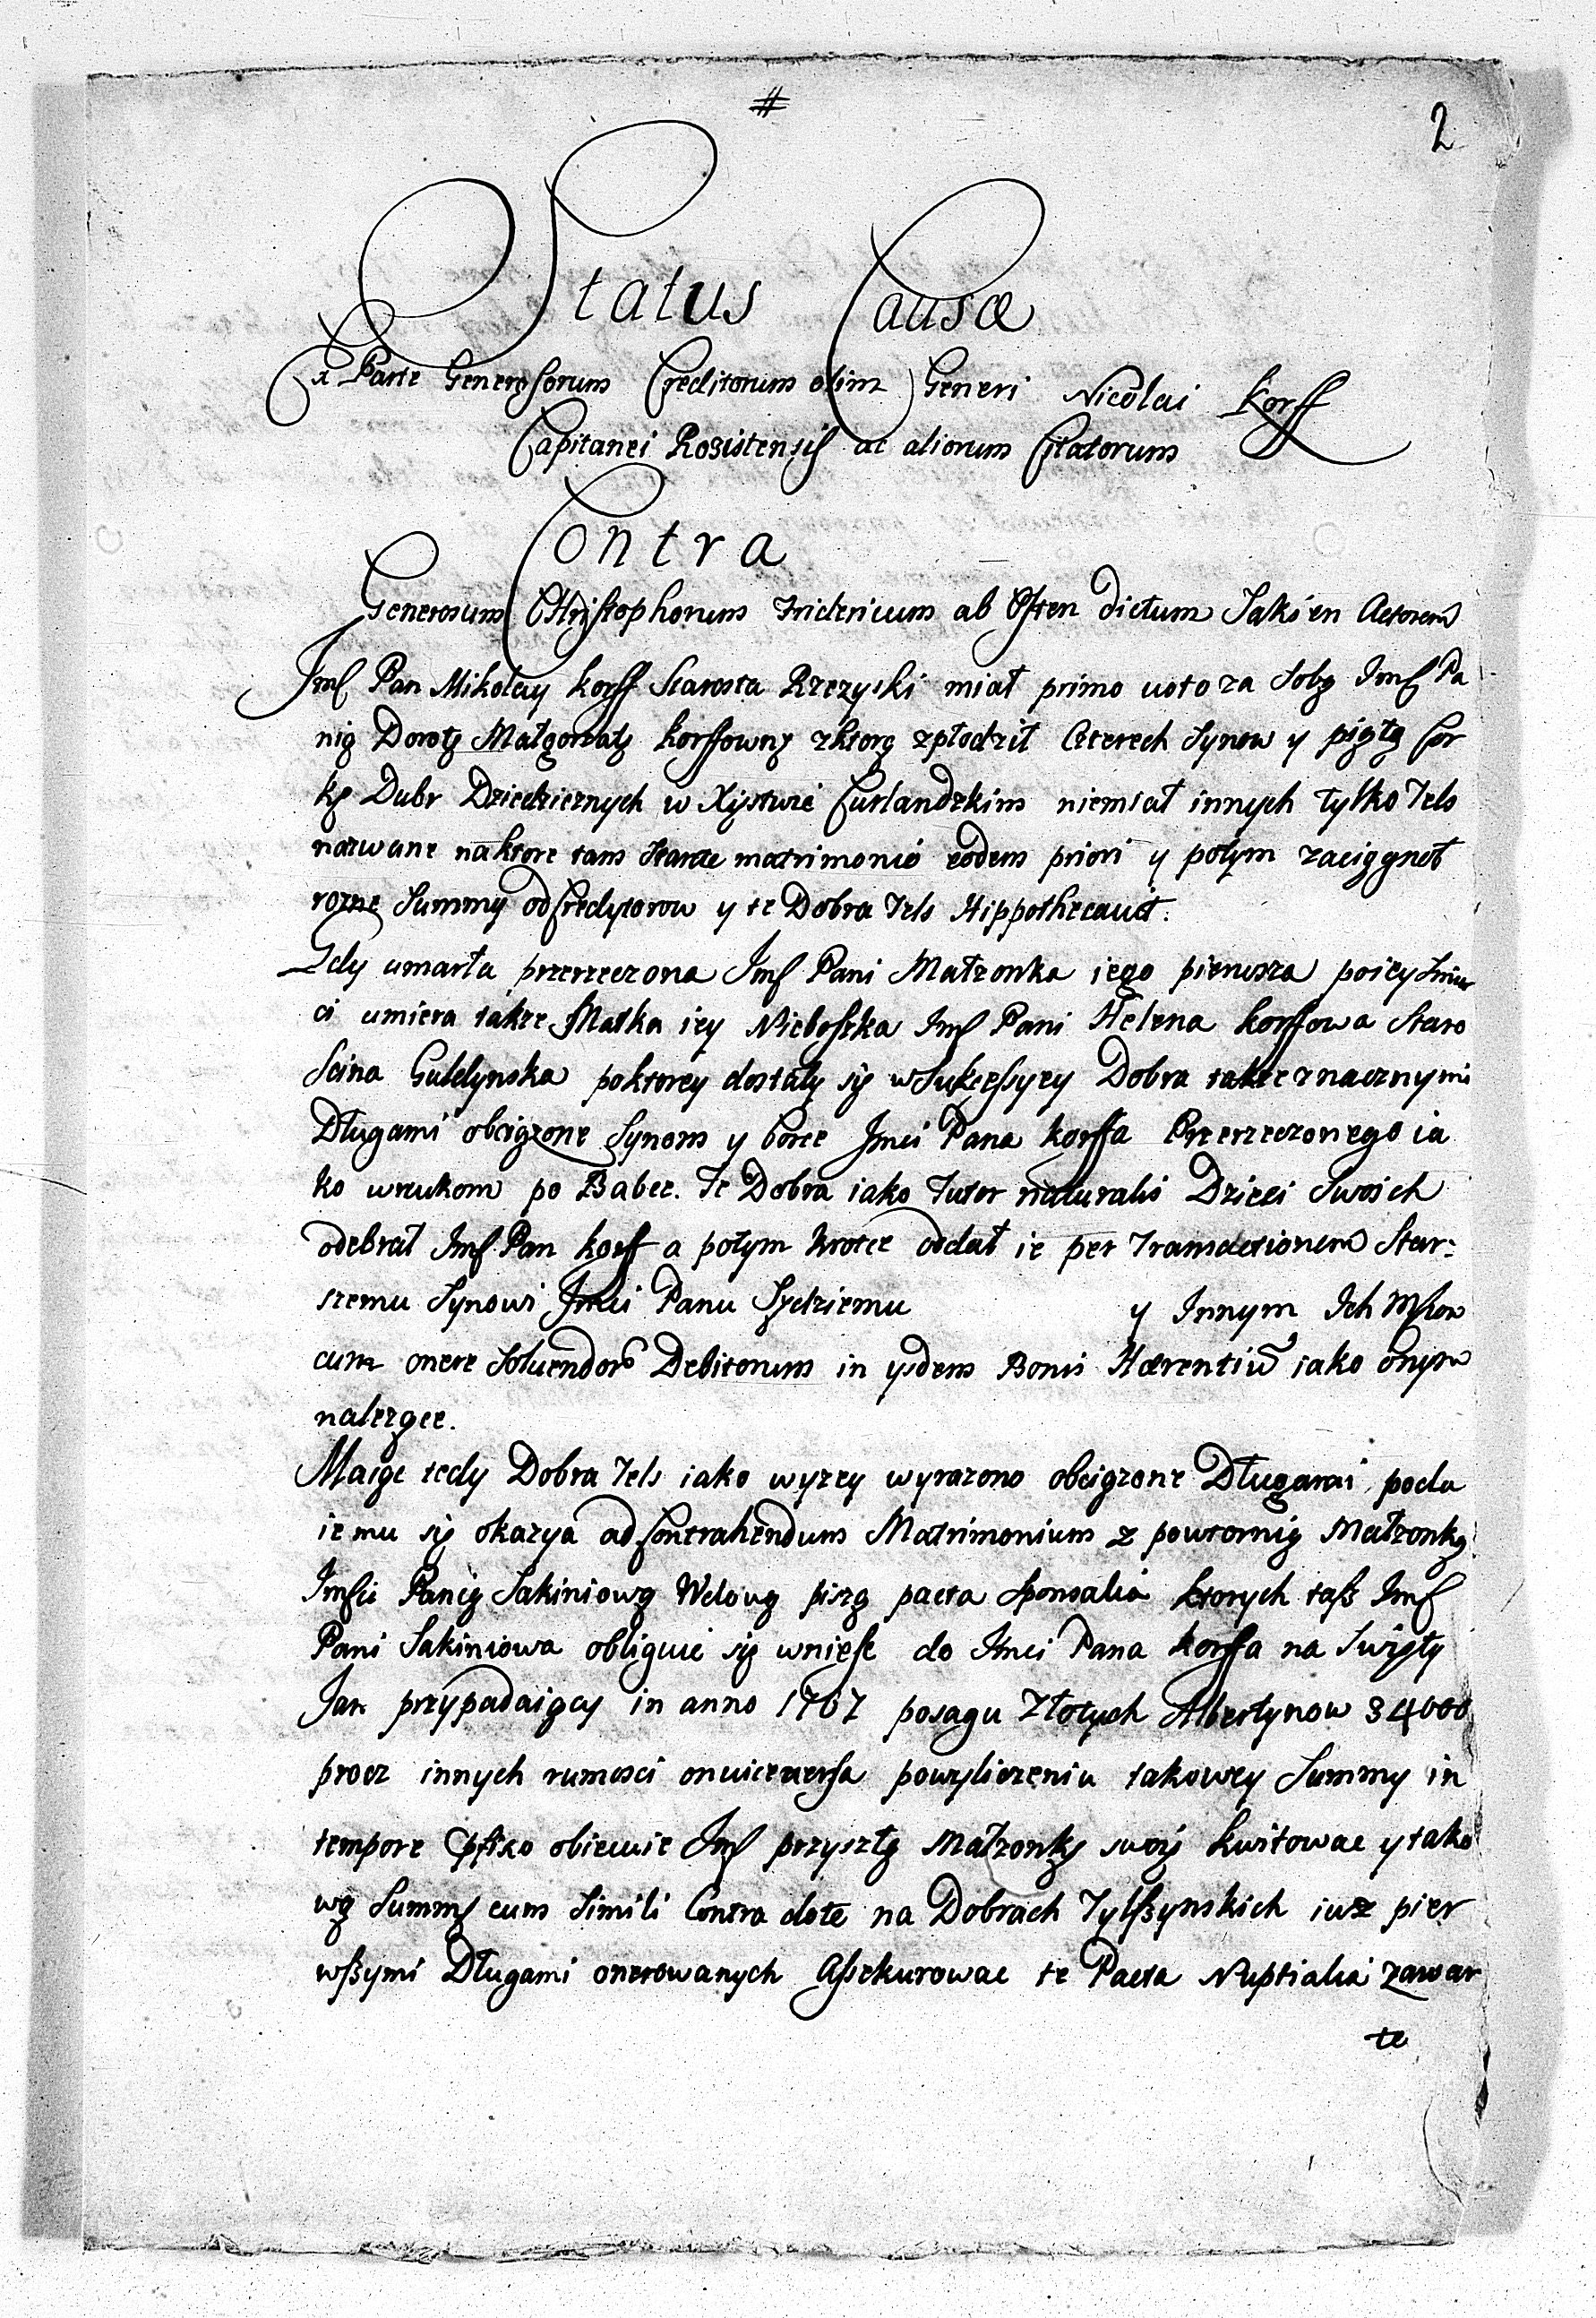 #
2
Status Causæ
Ex Parte Generosorum Creditorum olim Generi Nicolai Korff
Capitanei Rositensis ac aliorum Citatorum
Contra
Generosum Christophorum Fridericum ab Osten dictum Saken Actorem
Jmſ Pan Mikołay Korff Starosta Rzezyski miał primo voto za sobą Jmſ Pa
nią Dorotę Małgorzatę Korffownę zktorą zpłodził Czterech Synow y piątą Cor
kę Dubr Dziedzicznych w Xięstwie Curlandzkim niemiał innych tylko Tels
nazwane naktore tam stante matrimonio eodem priori y potym zaciągnoł
rozne Summy od Credytorow y te Dobra Tels Hippothecavit.
Gdy umarła przerzeczona Jmſ Pani Małzonka iego pierwsza poiey Smier
ci umiera także Matka iey Nieboszka Jmſ Pani Helena Korffowa Staro
scina Guldynska poktorey dostały się w Sukcessyey Dobra także znacznymi
Długami obciązone Synom y Corce Jmci Pana Korffa Przerzeczonego ia
ko wnukom po Babce. Te Dobra iako Tutor naturalis Dzieci Swoich
odebrał Jmſ Pan Korff a potym wrotce oddał ie per Transactionem Star:
szemu Synowi Jmci Panu Sędziemu y Innym Ich Mſcow
cum onere Solvendor Debitorum in ysdem Bonis Hærentiu iako onym
nalezące.
Maiąc tedy Dobra Tels iako wyzey wyrazono obciązone Długami, poda
ie mu się okazya ad Contrahendum Matrimonium z powtornią Małzonką
Jmſci Panią Sakiniową Wdową piszą pacta Sponsalia ktorych taſz Jmſ
Pani Sakiniowa obliguie się wnieſc do Jmci Pana Korffa na Swięty
Jan przypadaiący in anno 1707 posagu Złotych Albertynow 34000
procz innych rumosci on vice versa powyliczeniu takowey Summy in
tempore obiecuie Jmſ przyszłą Małzonkę swoię kwitowac y tako
wą Summę cum Simili Contra dote na Dobrach Tylſzynskich iuz pier
wſzymi Długami onerowanych Aſsekurowac te Pacta Nuptialia zawar
te